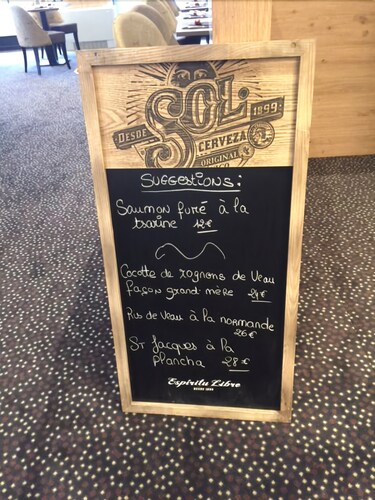 DESDE SOL 1899
CERVEZA
ORIGINAL
SUGGESTIONS :
Saumon fumé à la
tsarine 12€
Cocotte de rognons de Veau
façon grand-mère 24€
Ris de Veau à la normande
26€
St Jacques à la
plancha 28€
Espíritu Libre
DESDE 1899